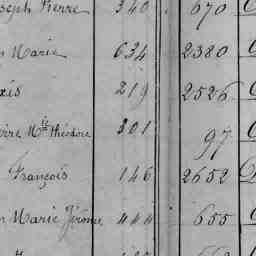 seph Pierre 340 670
Marie 634 2380
xis 219 2526
rre Mie théodore 301 97
François 146 2652
n Marie Jérôme 444 655